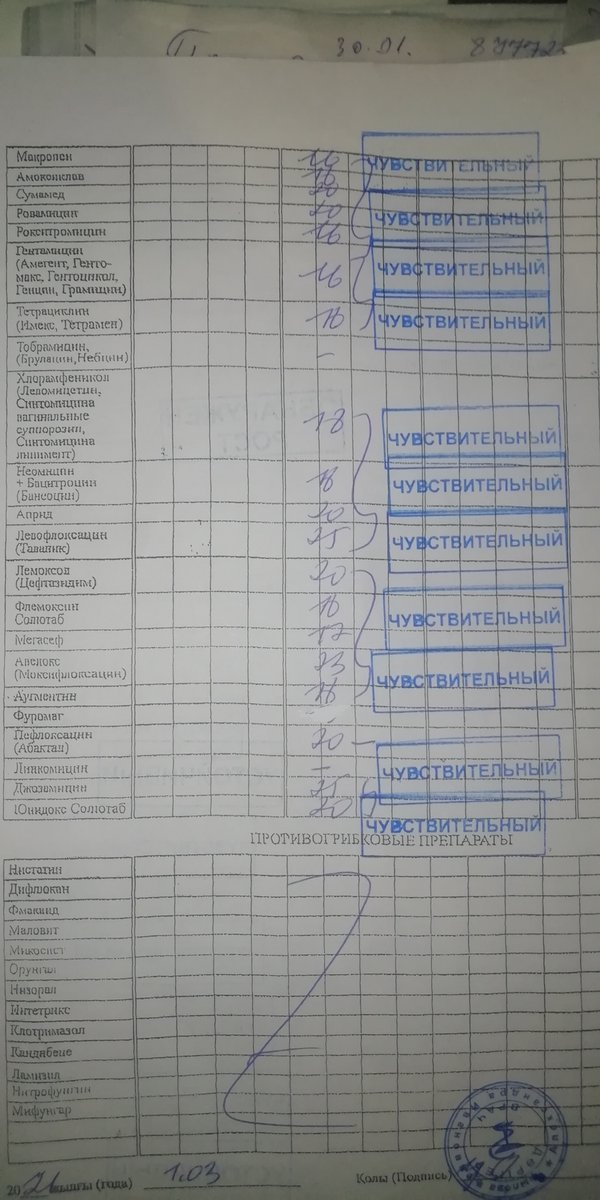 30.01.
Макропен 16 ЧУВСТВИТЕЛЬНЫЙ
Амоксиклав 18
Сумамед 20
Ровамицин 20 ЧУВСТВИТЕЛЬНЫЙ
Рокситромицин 16
Гентамицин
(Амегент, Генто-
макс, Гентоцикол, 16 ЧУВСТВИТЕЛЬНЫЙ
Генцин, Грамицин)
Тетрациклин
(Имекс, Тетрамен) 18 ЧУВСТВИТЕЛЬНЫЙ
Тобрамицин, –
(Брулацин,Небцин)
Хлорамфеникол
(Левомицетин,
Синтомицина
вагинальные 18 ЧУВСТВИТЕЛЬНЫЙ
суппорозии,
Синтомицина
линимент)
Неомицин
+ Бацитроцин 18 ЧУВСТВИТЕЛЬНЫЙ
(Банеоцин)
Априд 20
Левофлоксацин 25 ЧУВСТВИТЕЛЬНЫЙ
(Таваник)
Лемоксол 20
(Цефтазидим)
Флемоксин 18 ЧУВСТВИТЕЛЬНЫЙ
Солютаб
Мегасеф 17
Авелокс 23
(Моксифлоксацин) ЧУВСТВИТЕЛЬНЫЙ
Аугментин 18
Фуромаг –
Пефлоксацин 20 –
(Абактал)
Линкомицин – ЧУВСТВИТЕЛЬНЫЙ
Джозамицин 25
Юнидокс Солютаб 20 ЧУВСТВИТЕЛЬНЫЙ
ПРОТИВОГРИБКОВЫЕ ПРЕПАРАТЫ
Нистатин
Дифлюкан
Фмакинд
Маловит
Микосист
Орунгал
Низорал
Интетрикс
Клотримазол
Кандибене
Ламизил
Нитрофунгин
Мифунгар
20 21 жылгы (года) 1.03 Колы (Подпись)